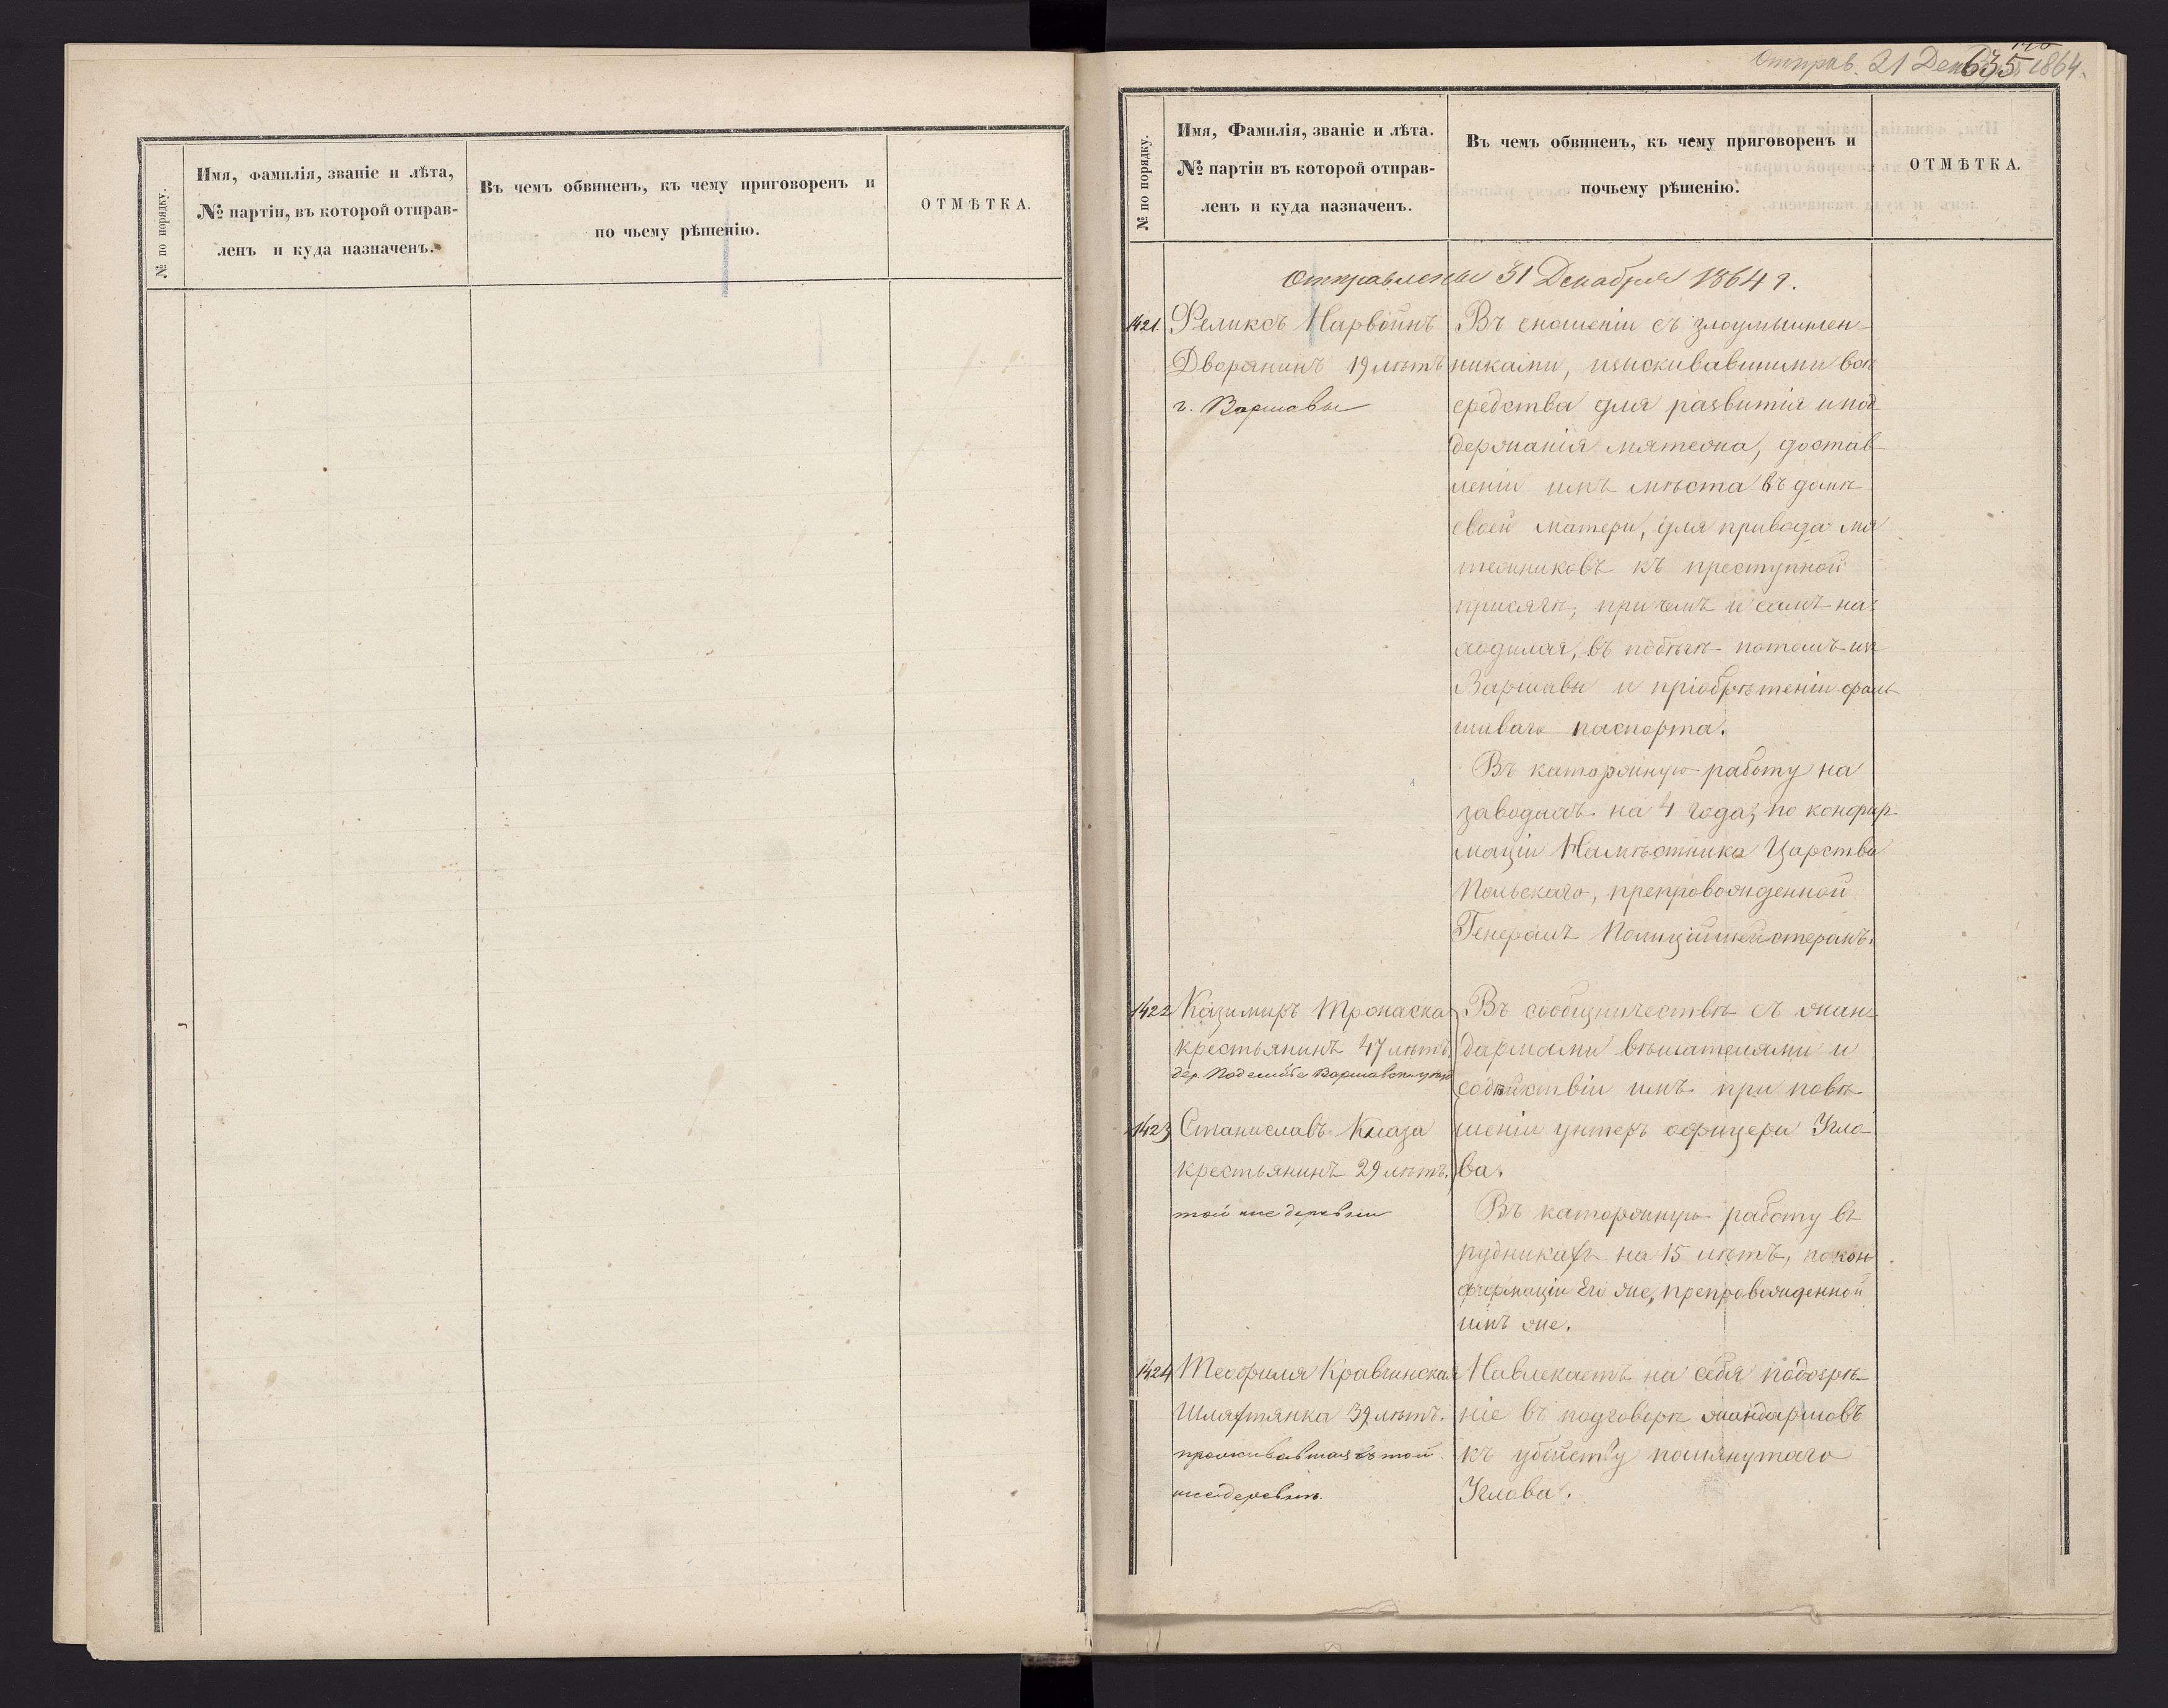 № по порядку.
Имя, фамилія, званіе и лѣта,
№ партіи, въ которой отправ-
ленъ и куда назначенъ.
Въ чемъ обвиненъ, къ чему приговоренъ и
по чьему рѣшенію.
ОТМѢТКА.
Отправ. 21 Декабря 1864.
635
№ по порядку.
Имя, Фамилія, званіе и лѣта.
№ партіи въ которой отправ-
ленъ и куда назначенъ.
Въ чемъ обвиненъ, къ чему приговоренъ и
почьему рѣшенію.
ОТМѢТКА.
Отправлены 31 Декабря 1864 г.
1421. Феликсъ Нарвойнъ
Дворянинъ 19 лѣтъ
г. Варшавы
Въ сношеніи съ злоумышлен-
никами, изыскивавшими всѣ
средства для развитія и под
держанія мятежа, достав-
леніи имъ мѣста въ домѣ
своей матери, для привода мя
тежниковъ къ преступной
присягѣ, причемъ и самъ на-
ходился, въ побѣгѣ потомъ изъ
Варшавы и пріобрѣтеніи фаль-
шиваго паспорта.
Въ каторжную работу на
заводахъ на 4 года, по конфир-
маціи Намѣстника Царства
Польскаго, препровожденной
Генералъ Полиціймейстеромъ.
1422 Казимиръ Тронаска
крестьянинъ 47 лѣтъ.
дер. Варшавск. уѣзд
1423 Станиславъ Клаза
крестьянинъ 29 лѣтъ.
той же деревни
Въ сообщничествѣ съ жан-
дармами вѣшателями и
содѣйствіи имъ при повѣ
шеніи унтеръ офицера Угло-
ва.
Въ каторжную работу въ
рудникахъ на 15 лѣтъ, по кон
фирмаціи Его же, препровожденной
имъ же.
1424 Теофиля Кравчинская
Шляхтянка 39 лѣтъ.
проживавшая въ той
же деревнѣ.
Навлекаетъ на себя подозрѣ-
ніе въ подговорѣ жандармовъ
къ убійству помянутаго
Углова.